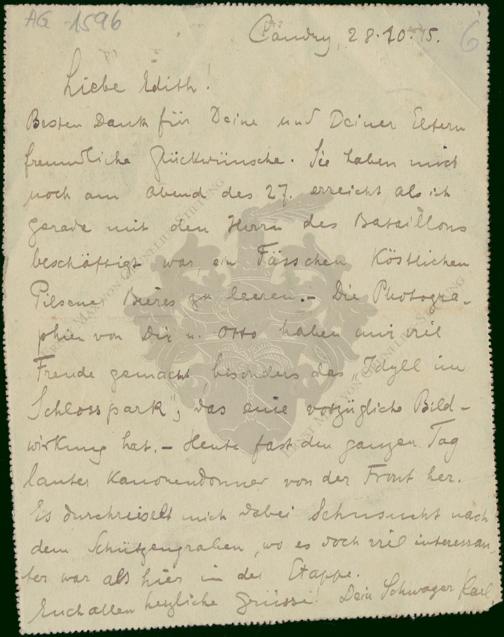 AG-1596
6
Caudry, 28.10.15.
Liebe Edith!
Besten Dank für Deine und Deiner Eltern
freundliche Glückwünsche. Sie haben mich
noch am Abend des 27. erreicht als ich
gerade mit den Herrn des Bataillons
beschäftigt war ein Fässchen Köstlichen
Pilsener Bieres zu leeren. – Die Photogra-
phien von Dir u. Otto haben mir viel
Freude gemacht besonders das „Idyll im
Schlosspark", das eine vorzügliche Bild-
wirkung hat. – Heute fast den ganzen Tag
lauter Kanonendonner von der Front her.
Es durchrieselt mich dabei Sehnsucht nach
dem Schützengraben, wo es doch viel interessan
ter war als hier in der Etappe.
Euch allen herzliche Grüsse! Dein Schwager Karl.